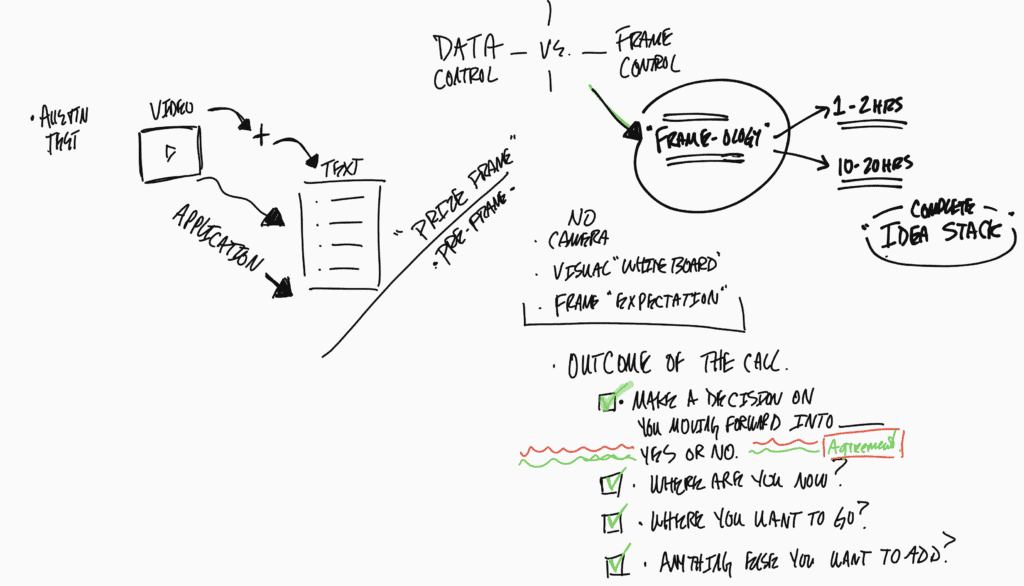 DATA CONTROL
— VS. —
FRAME CONTROL
• AUSTIN TEST
VIDEO
+
TEXT
APPLICATION
"PRIZE FRAME"
• PRE-FRAME •
"FRAME-OLOGY"
1-2HRS
10-20HRS
COMPLETE
"IDEA STACK"
NO
• CAMERA
• VISUAL "WHITEBOARD"
• FRAME "EXPECTATION"
• OUTCOME OF THE CALL.
• MAKE A DECISION ON
YOU MOVING FORWARD INTO ____
YES OR NO.
Agreement
• WHERE ARE YOU NOW?
• WHERE YOU WANT TO GO?
• ANYTHING ELSE YOU WANT TO ADD?